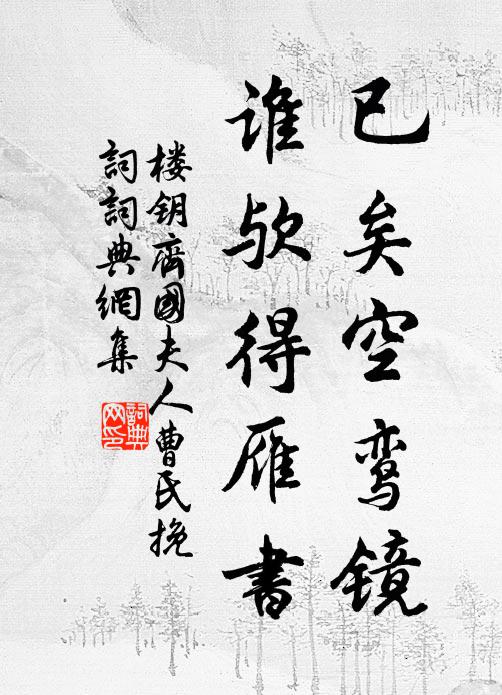 已矣空鸾镜
谁欤得雁书
楼钥齊國夫人曹氏挽
詞詞典網集
詞典网印